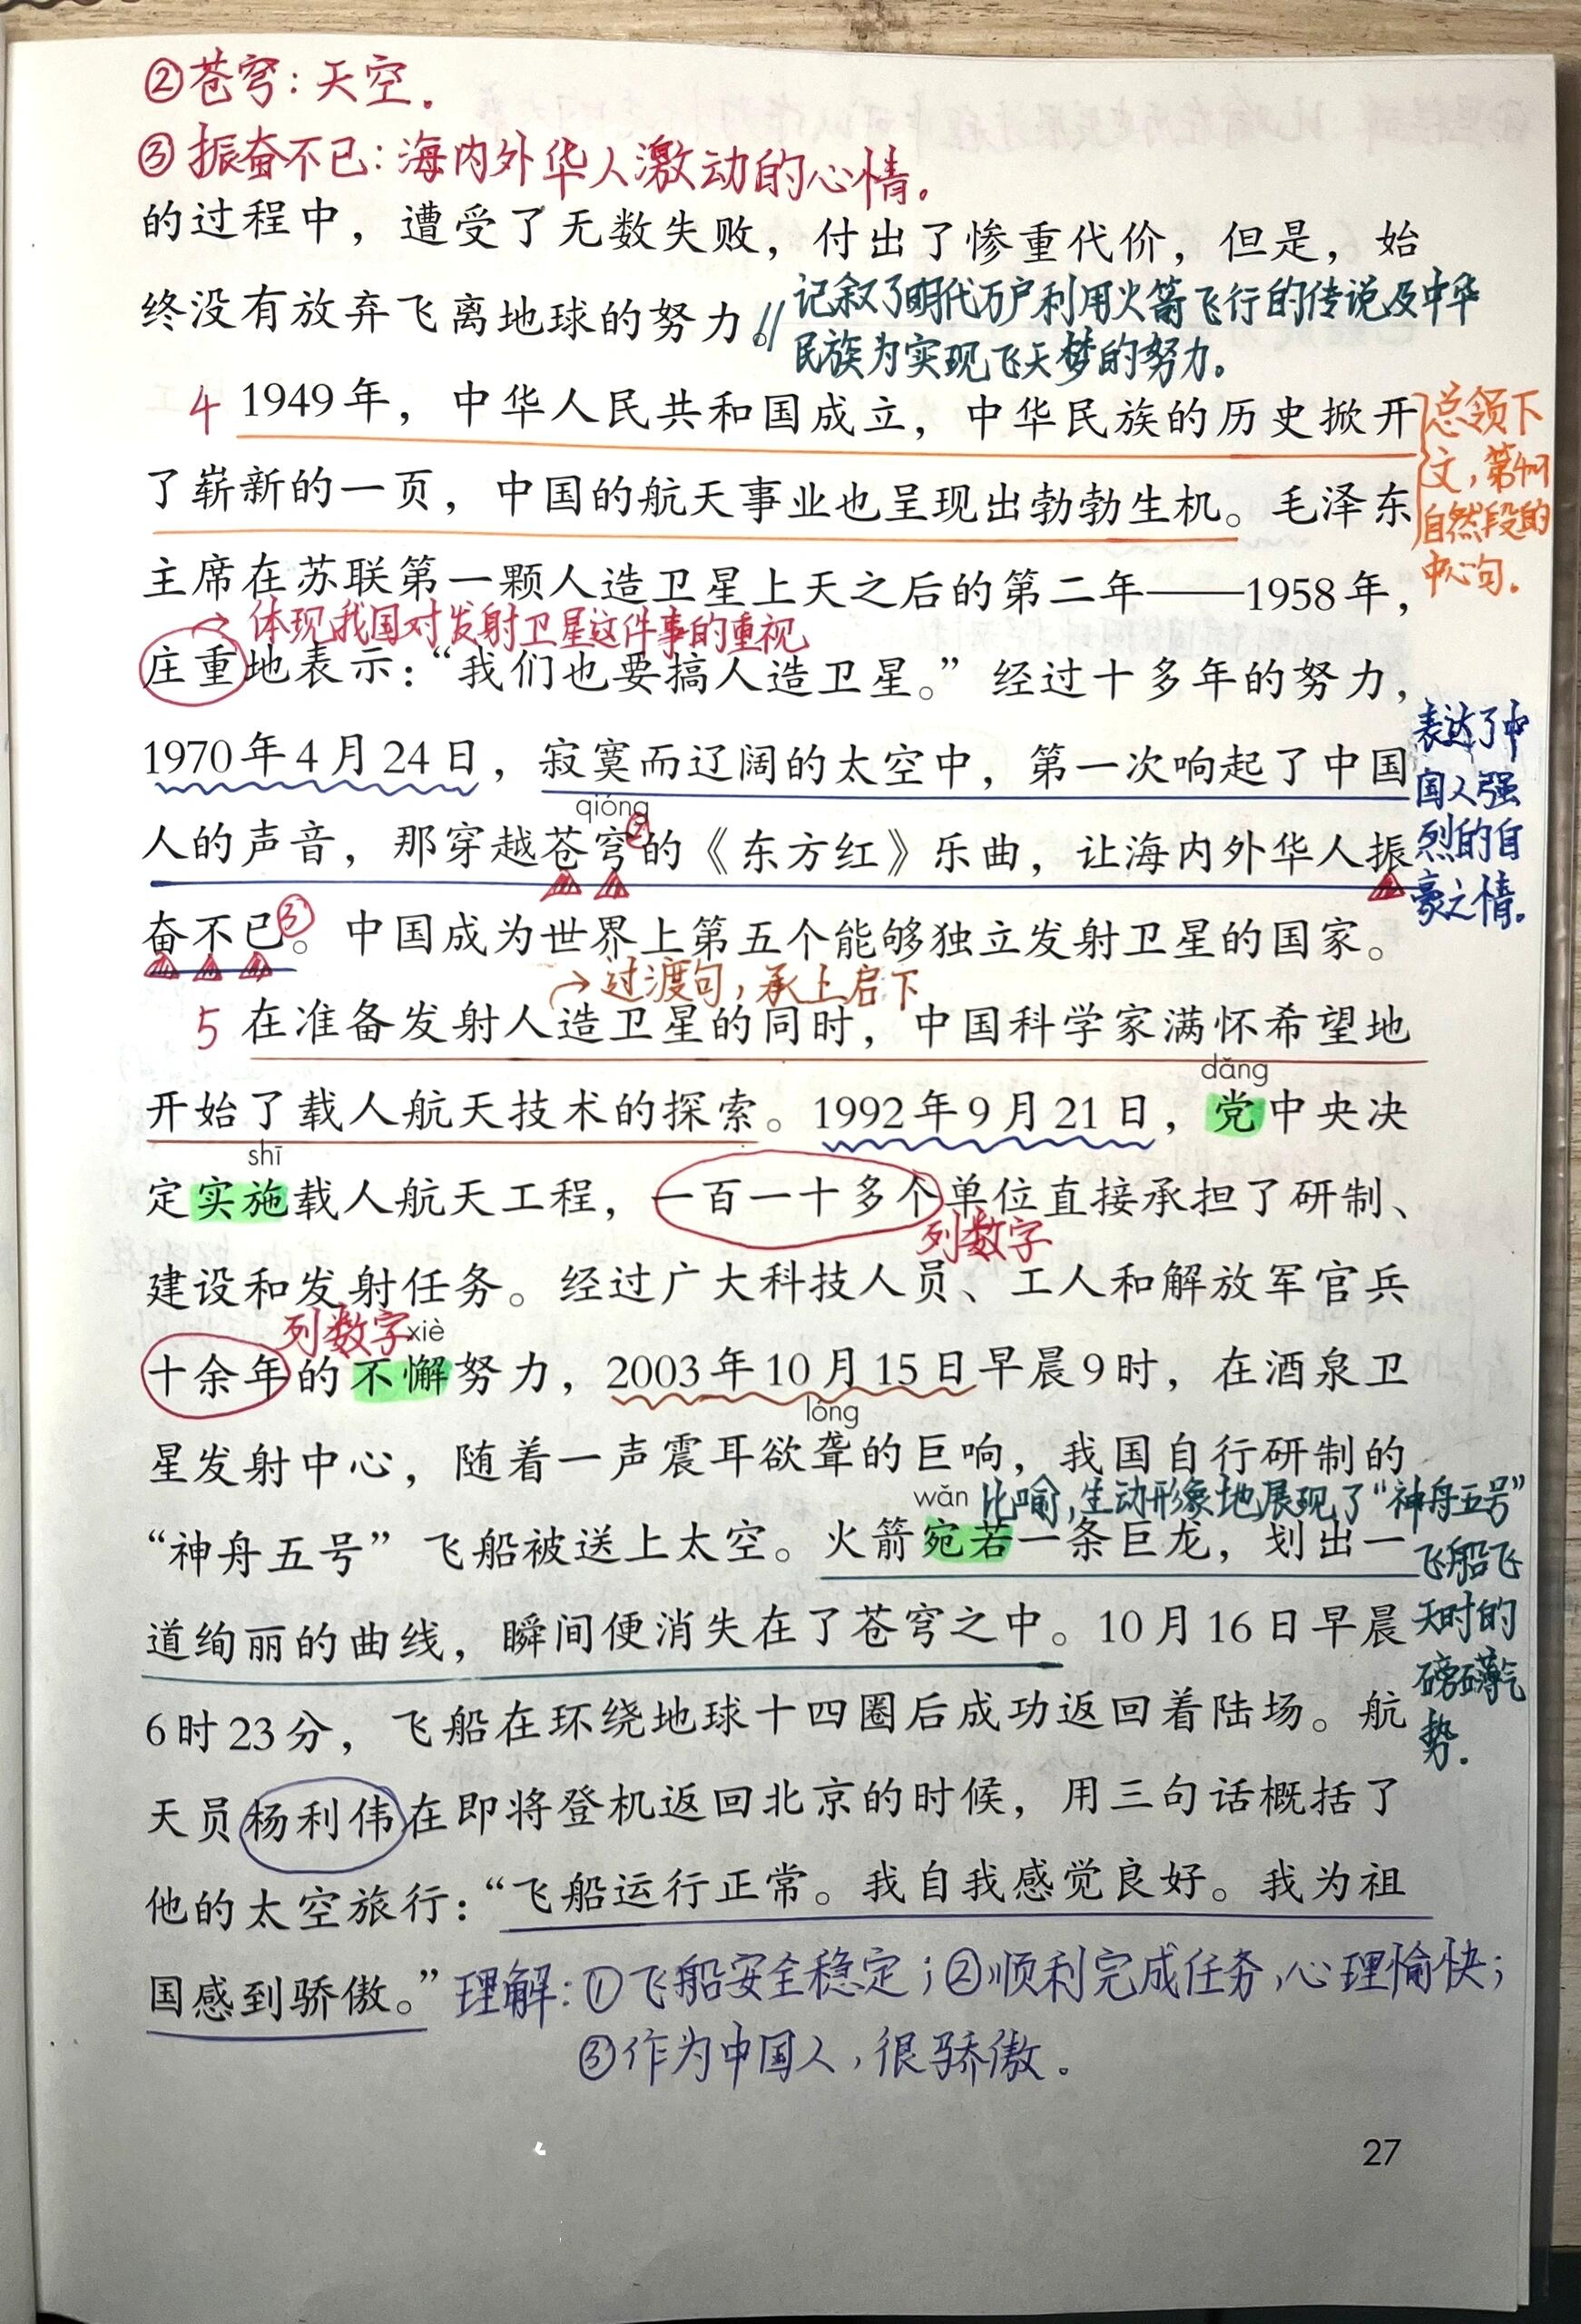 ②苍穹：天空.
③振奋不已：海内外华人激动的心情。
的过程中，遭受了无数失败，付出了惨重代价，但是，始
终没有放弃飞离地球的努力。//
记叙了明代万户利用火箭飞行的传说及中华
民族为实现飞天梦的努力。
4 1949年，中华人民共和国成立，中华民族的历史掀开
了崭新的一页，中国的航天事业也呈现出勃勃生机。毛泽东
总领下
文，第4
自然段的
中心句.
主席在苏联第一颗人造卫星上天之后的第二年——1958年，
→体现我国对发射卫星这件事的重视
庄重地表示：“我们也要搞人造卫星。”经过十多年的努力，
1970年4月24日，寂寞而辽阔的太空中，第一次响起了中国
qióng
人的声音，那穿越苍穹②的《东方红》乐曲，让海内外华人振
奋不已③。中国成为世界上第五个能够独立发射卫星的国家。
表达了中
国人强
烈的自
豪之情。
→过渡句，承上启下
5 在准备发射人造卫星的同时，中国科学家满怀希望地
dǎng
开始了载人航天技术的探索。1992年9月21日，党中央决
shī
定实施载人航天工程，一百一十多个单位直接承担了研制、
列数字
建设和发射任务。经过广大科技人员、工人和解放军官兵
列数字
xiè
十余年的不懈努力，2003年10月15日早晨9时，在酒泉卫
lóng
星发射中心，随着一声震耳欲聋的巨响，我国自行研制的
wǎn
比喻，生动形象地展现了“神舟五号”
飞船飞
天时的
磅礴气
势.
“神舟五号”飞船被送上太空。火箭宛若一条巨龙，划出一
道绚丽的曲线，瞬间便消失在了苍穹之中。10月16日早晨
6时23分，飞船在环绕地球十四圈后成功返回着陆场。航
天员杨利伟在即将登机返回北京的时候，用三句话概括了
他的太空旅行：“飞船运行正常。我自我感觉良好。我为祖
国感到骄傲。”
理解：①飞船安全稳定；②顺利完成任务，心理愉快；
③作为中国人，很骄傲。
27